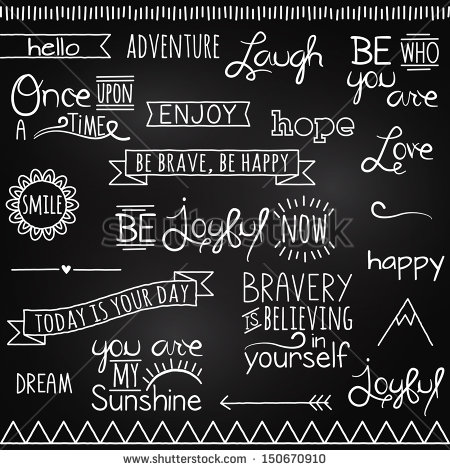 hello
ADVENTURE
Laugh
BE WHO
you
are
Once UPON
A TIME
ENJOY
hope
BE BRAVE, BE HAPPY
Love
SMILE
BE Joyful NOW
happy
TODAY IS YOUR DAY
BRAVERY
IS BELIEVING
in
yourself
you are
MY
Sunshine
DREAM
Joyful
shutterstock
www.shutterstock.com · 150670910